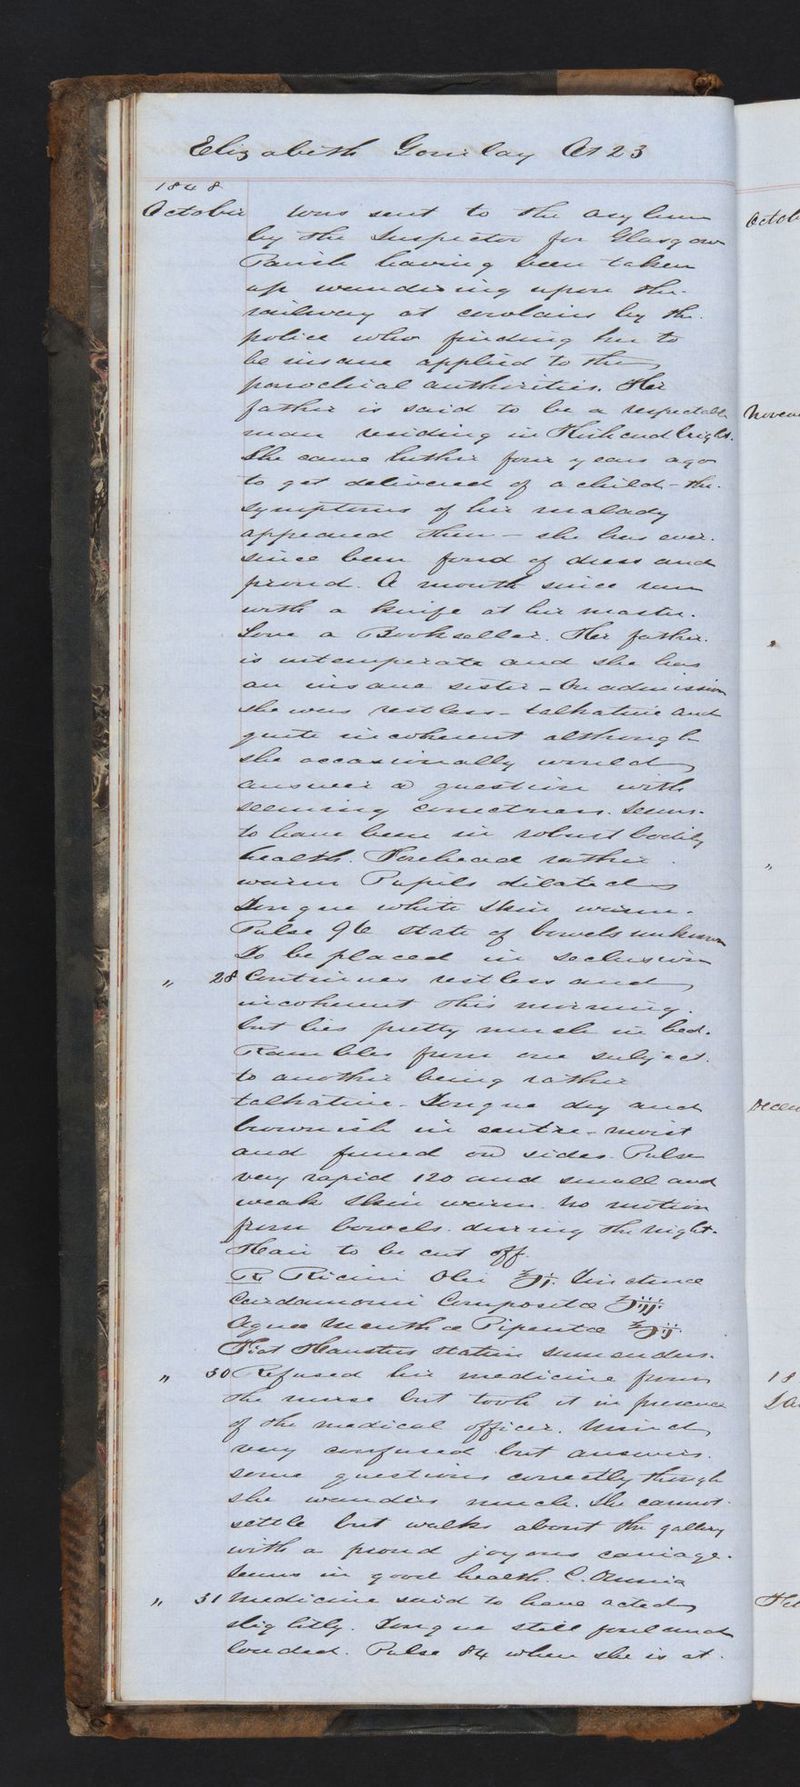 Elizabeth Gourlay Æt 23
1848
October was sent to the asylum
by the Inspector for Glasgow
Parish having been taken
up wandering upon the
railway at Cowlairs by the
police who finding her to
be insane applied to the
parochial authorities. Her
father is said to be a respectable
man residing in Kirkcudbright.
She came hither four years ago
to get delivered of a child - the
symptoms of her malady
appeared then - she has ever
since been fond of dress and
proud. A month since ran
with a knife at her master.
Love a Bookseller. Her father
is intemperate and she has
an insane sister - On admission
she was restless - talkative and
quite incoherent although
she occasionally would
answer a question with
seeming correctness. Seems
to have been in robust bodily
health. Forehead rather
warm Pupils dilated
Tongue white Skin warm.
Pulse 96 state of bowels unknown
To be placed in seclusion
" 28 Continues restless and
incoherent this morning.
but lies pretty much in bed.
Rambles from one subject
to another being rather
talkative. Tongue dry and
brownish in centre - moist
and furred on sides. Pulse
very rapid 120 and small and
weak Skin warm. No motion
from bowels during the night.
Hair to be cut off.
℞ Ricini Olei ℥j. Tincturae
Cardamomi Compositae ʒiij.
Aquae Menthae Piperitae ℥ij
Fiat Haustus statim sumendus.
" 30 Refused her medicine from
the nurse but took it in presence
of the medical officer. Mind
very confused but answers
some questions correctly though
she wanders much. She cannot
settle but walks about the gallery
with a proud joyous carriage.
Seems in good health. C. Omnia
" 31 Medicine said to have acted
slightly. Tongue still foul and
loaded. Pulse 84 when she is at
Octob
Novem
"
"
Decem
18
Ja
Fe